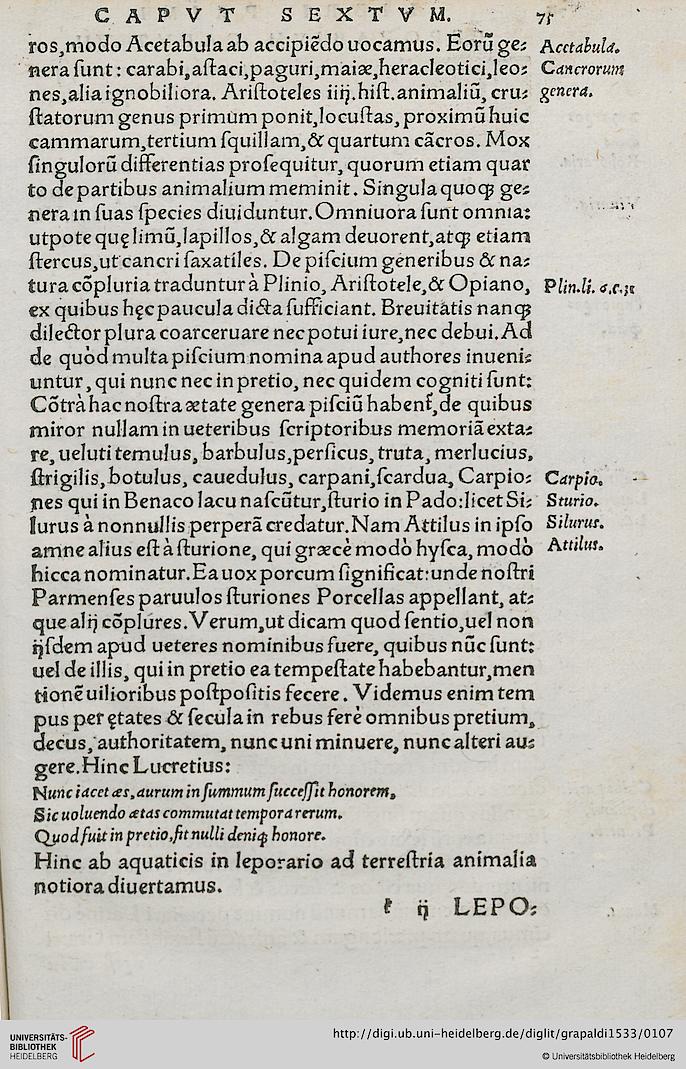 CAPVT SEXTVM. 75
ros,modo Acetabula ab accipiẽdo uocamus. Eorũ ge⸗ Acetabula.
nera ſunt: carabi,aſtaci,paguri,maiæ,heracleotici,leo⸗ Cancrorum
nes,alia ignobiliora. Ariſtoteles iiij.hiſt.animaliũ, cru⸗ genera.
ſtatorum genus primum ponit,locuſtas, proximũ huic
cammarum,tertium ſquillam,& quartum cãcros. Mox
ſingulorũ differentias proſequitur, quorum etiam quar
to de partibus animalium meminit. Singula quoqꝫ ge⸗
nera in ſuas ſpecies diuiduntur. Omniuora ſunt omnia:
utpote quę limũ,lapillos,& algam deuorent,atqꝫ etiam
ſtercus,ut cancri ſaxatiles. De piſcium generibus & na⸗
tura cõpluria traduntur à Plinio, Ariſtotele,& Opiano, Plin.li. 6.c.31
ex quibus hęc paucula dicta ſufficiant. Breuitatis nanqꝫ
dilector plura coarceruare nec potui iure,nec debui. Ad
de quòd multa piſcium nomina apud authores inueni⸗
untur, qui nunc nec in pretio, nec quidem cogniti ſunt:
Cõtrà hac noſtra ætate genera piſciũ habent̃,de quibus
miror nullam in ueteribus ſcriptoribus memoriã exta⸗
re, ueluti temulus, barbulus,perſicus, truta, merlucius,
ſtrigilis, botulus, cauedulus, carpani,ſcardua, Carpio⸗ Carpio.
nes qui in Benaco lacu naſcũtur,ſturio in Pado:licet Si⸗ Sturio.
lurus à nonnullis perperã credatur. Nam Attilus in ipſo Silurus.
amne alius eſt à ſturione, qui græcè modò hyſca, modò Attilus.
hicca nominatur. Ea uox porcum ſignificat: unde noſtri
Parmenſes paruulos ſturiones Porcellas appellant, at⸗
que alij cõplures. Verum,ut dicam quod ſentio,uel non
ijſdem apud ueteres nominibus fuere, quibus nũc ſunt:
uel de illis, qui in pretio ea tempeſtate habebantur,men
tionẽ uilioribus poſtpoſitis fecere. Videmus enim tem
pus per ętates & ſecula in rebus ferè omnibus pretium,
decus, authoritatem, nunc uni minuere, nunc alteri au⸗
gere. Hinc Lucretius:
Nunc iacet æs, aurum in ſummum ſucceſſit honorem,
Sic uoluendo ætas commutat tempora rerum.
Quod fuit in pretio,fit nulli deniqꝫ honore.
Hinc ab aquaticis in leporario ad terreſtria animalia
notiora diuertamus.
ij LEPO⸗
UNIVERSITÄTS-
BIBLIOTHEK
HEIDELBERG
http://digi.ub.uni-heidelberg.de/diglit/grapaldi1533/0107
© Universitätsbibliothek Heidelberg